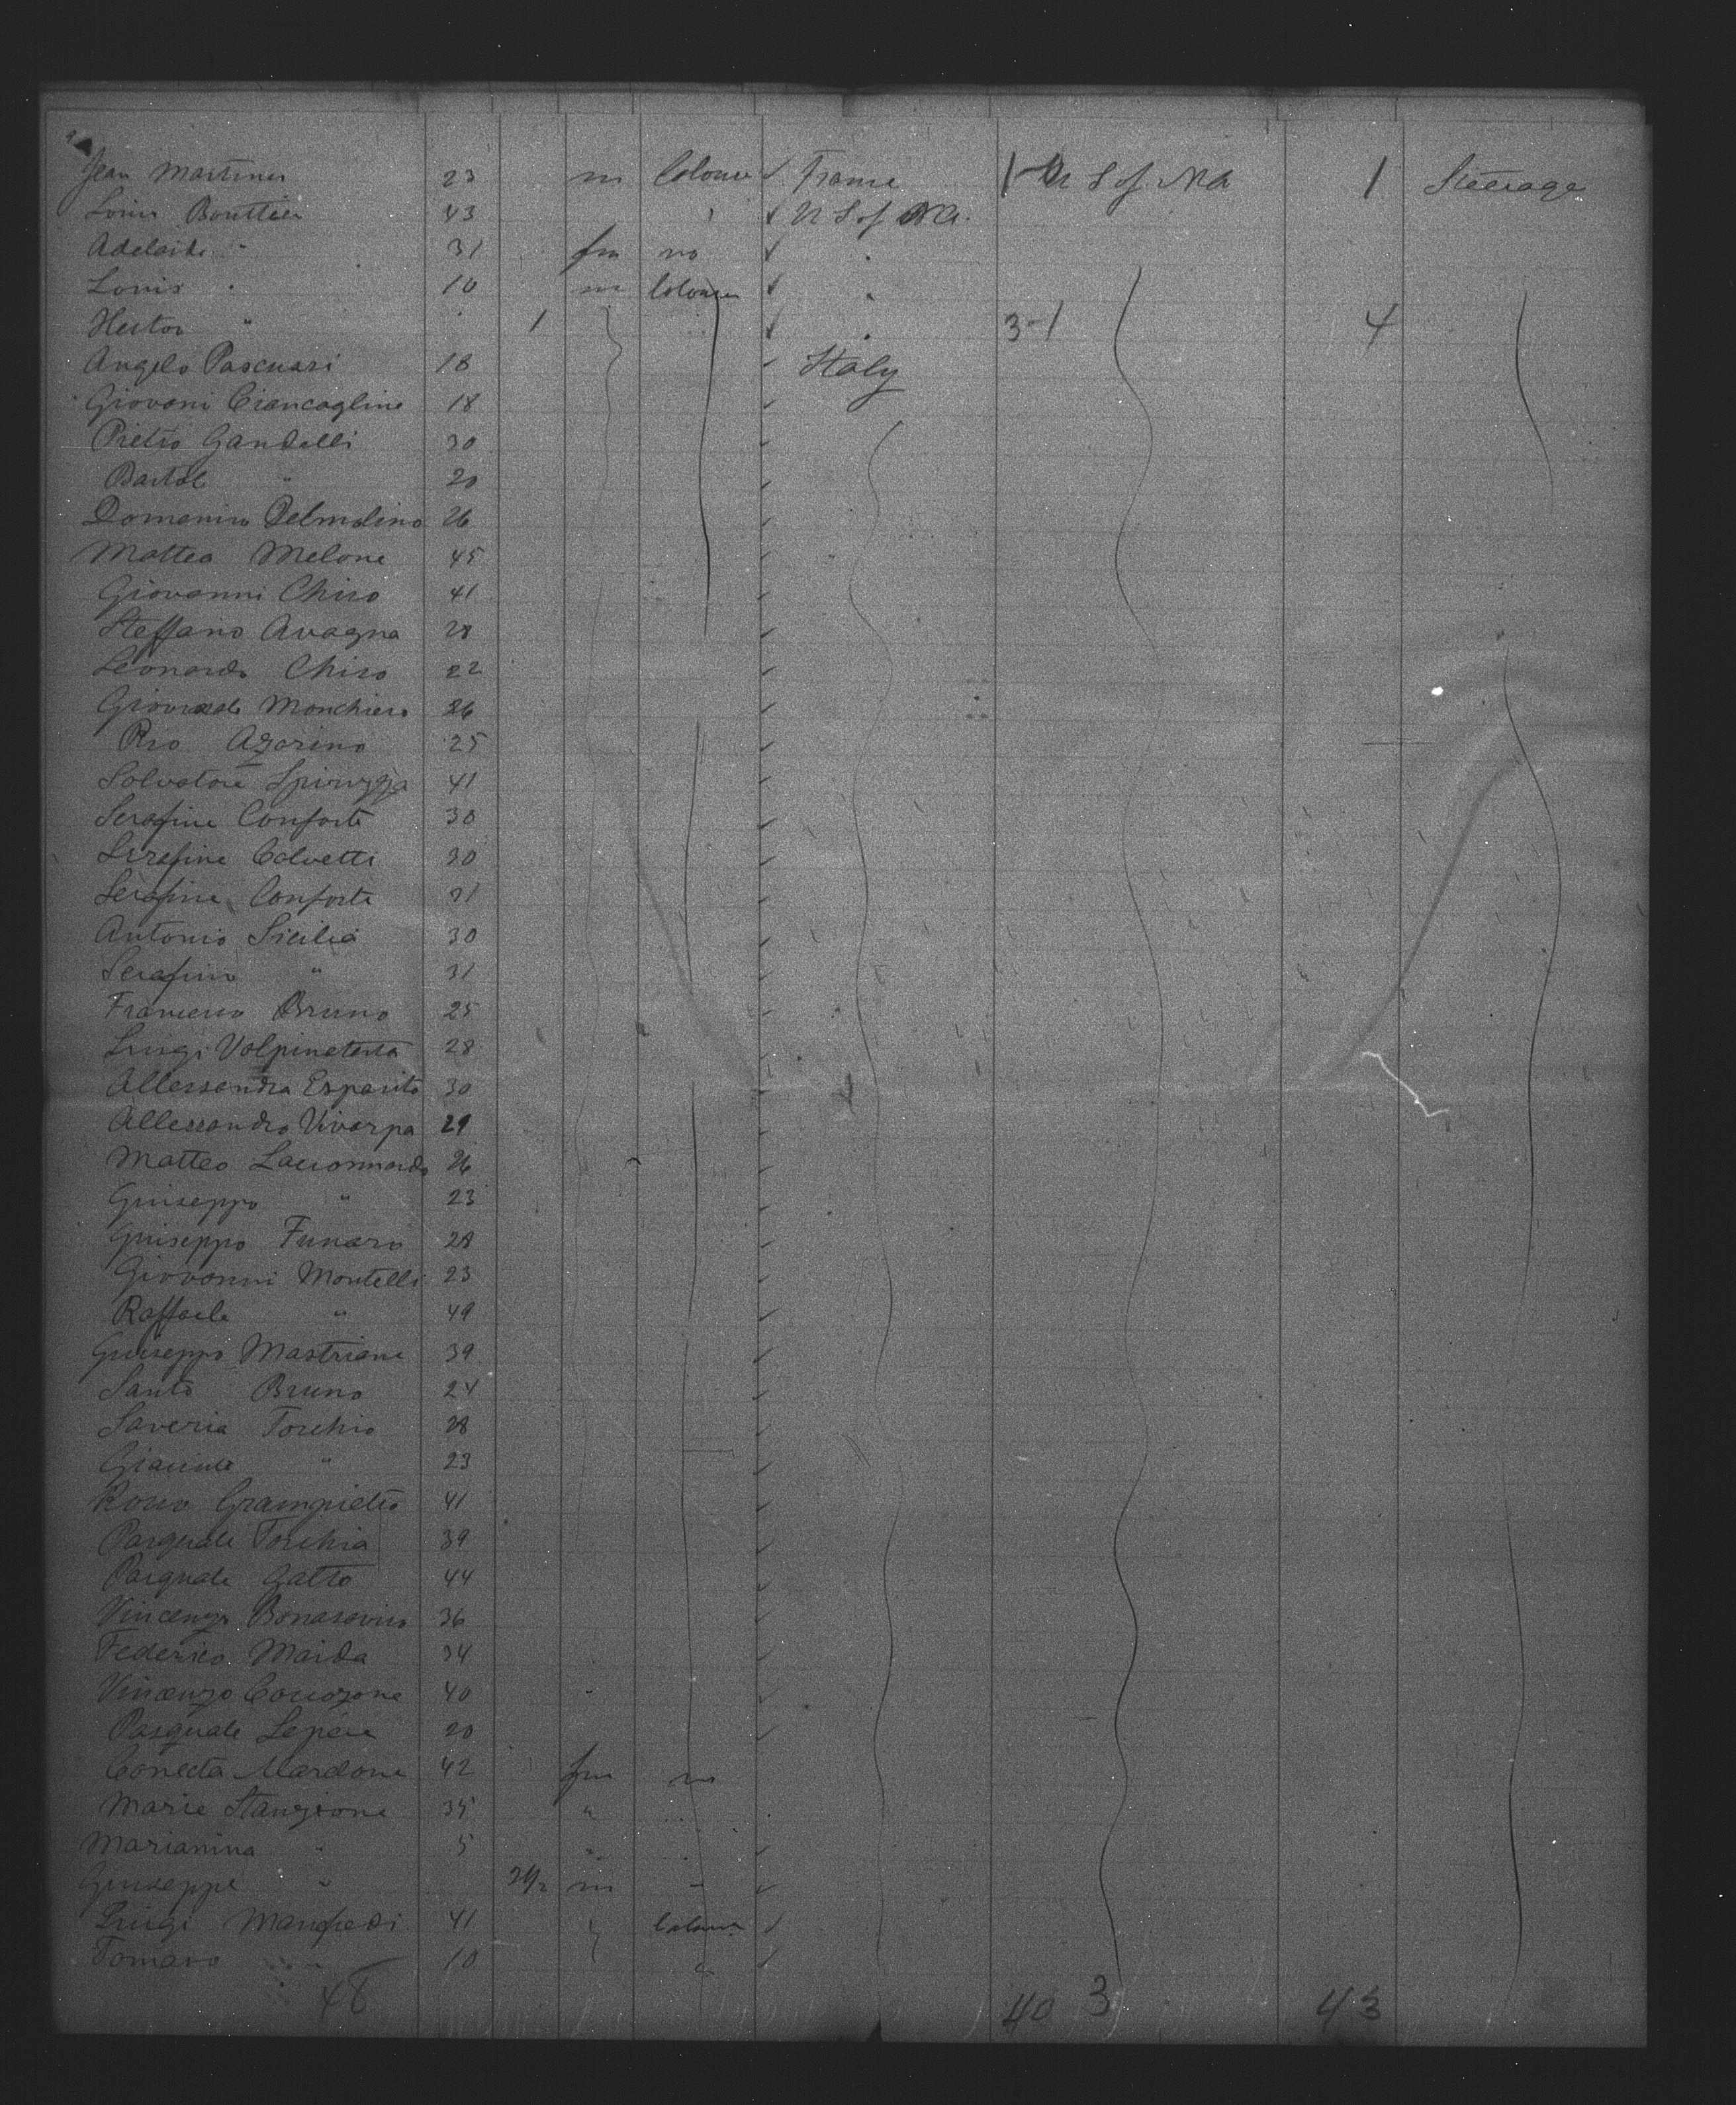 Jean Martiner 23 m Coloner ✓ France 1 - U S of NA 1 Steerage
Louis Bouttier 43 ✓ U S of NA.
Adelaide " 31 fm no ✓ "
Louis " 10 m Coloner ✓ "
Hestor " 1 ✓ " 3-1 4
Angelo Pascuasi 18 ✓ Italy
Giovani Ciancaglini 18 ✓
Pietro Gandelli 30 ✓
Bartol " 20 ✓
Domenico Delmolino 26 ✓
Matteo Melone 45 ✓
Giovanni Chiro 41 ✓
Steffano Avagna 28 ✓
Leonardo Chiro 22 ✓
Monchiero 26 ✓
Pio Azarino 25 ✓
Salvatore 41 ✓
Serafine Conforte 30 ✓
Serafine Calvetti 30 ✓
Serafine Conforte 31 ✓
Antonio Sicilia 30 ✓
Serafino " 31 ✓
Francesco Bruno 25 ✓
Luigi Volpintesta 28 ✓
Allessandra Esposito 30 ✓
Allessandro Vivarpa 29 ✓
Matteo Lacionnardo 26 ✓
Guiseppo " 23 ✓
Guiseppo Funaro 28 ✓
Giovanni Montelli 23 ✓
Raffaele " 49 ✓
Guiseppo Mastriani 39 ✓
Santo Bruno 24 ✓
Saveria Torchio 28 ✓
" 23 ✓
Rocco Grampietro 41 ✓
Pasquale Torchia 39 ✓
Pasquale Gatto 44 ✓
Vincenzo 36 ✓
Federico Maida 34 ✓
Vincenzo Cocozone 40 ✓
Pasquale Lepere 20 ✓
Concetta Mardone 42 fm no
Marie Stanzione 35 "
Marianina " 5 " ✓
Guiseppe " 2 1/2 m " ✓
Luigi Manfredi 41 Coloner ✓
Tomaso " 10 " ✓
48 40 3 43